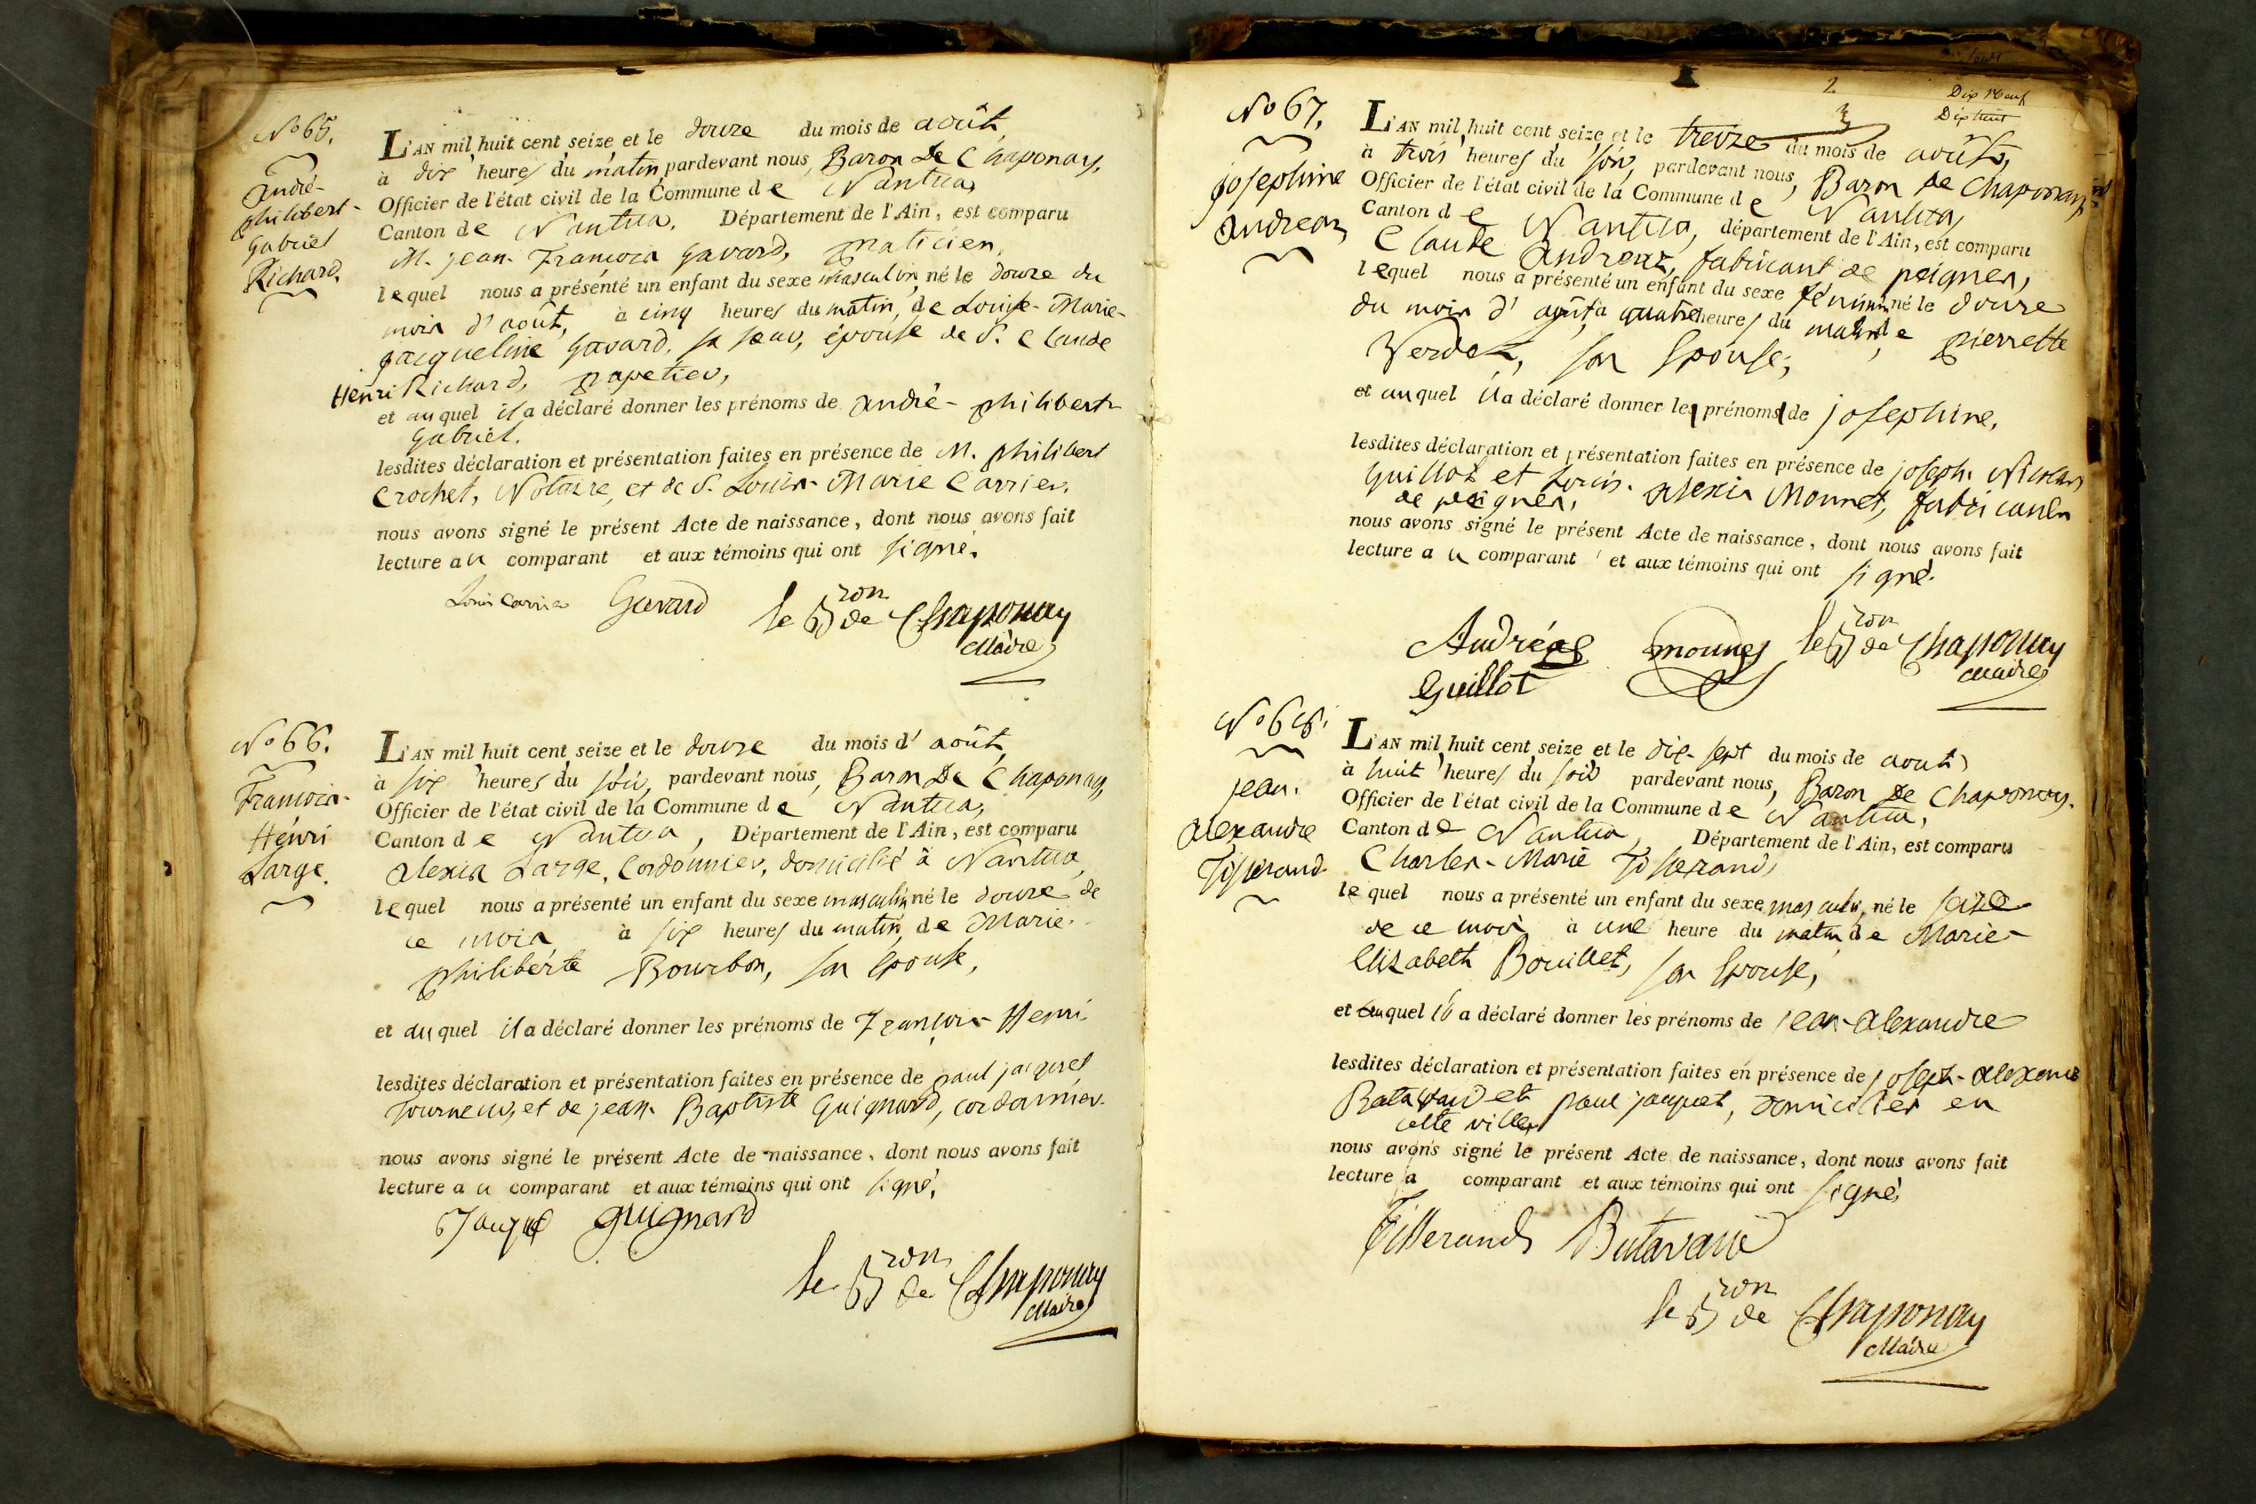 No 65.
André-
philibert-
Gabriel
Richard.
L'AN mil huit cent seize et le douze du mois de août,
à dix heures du matin pardevant nous, Baron De Chaponay,
Officier de l'état civil de la Commune de Nantua,
Canton de Nantua, Département de l'Ain, est comparu
M. jean-François gavard, praticien,
lequel nous a présenté un enfant du sexe masculin, né le douze du
mois d'août, à cinq heures du matin, de Louise-Marie-
jacqueline Gavard, sa sœur, épouse de S. Claude
Henri Richard, papetier,
et auquel il a déclaré donner les prénoms de andré-philibert-
Gabriel.
lesdites déclaration et présentation faites en présence de M. philibert
Crochet, Notaire, et de S. Louis-Marie Carrier,
nous avons signé le présent Acte de naissance, dont nous avons fait
lecture au comparant et aux témoins qui ont signé.
Louis Carrier Gavard le Bron de Chaponay
Maire
No 66.
François-
Henri
Large.
L'AN mil huit cent seize et le douze du mois d'août,
à six heures du soir, pardevant nous, Baron De Chaponay,
Officier de l'état civil de la Commune de Nantua,
Canton de Nantua, Département de l'Ain, est comparu
alexis Large, Cordonnier, domicilié à Nantua,
lequel nous a présenté un enfant du sexe masculin né le douze de
ce mois à six heures du matin, de Marie-
philiberte Bourbon, son Epouse,
et auquel il a déclaré donner les prénoms de François-Henri
lesdites déclaration et présentation faites en présence de paul jacquet
Tourneur, et de jean-Baptiste Guignard, cordonnier.
nous avons signé le présent Acte de naissance, dont nous avons fait
lecture au comparant et aux témoins qui ont signé.
Jacquet guignard
le Bron de Chaponay
Maire
2
Dix Neuf
Dix huit
3
No 67.
josephine
andreaz
L'AN mil huit cent seize et le treize du mois de août,
à trois heures du soir, pardevant nous, Baron de Chaponay,
Officier de l'état civil de la Commune de Nantua,
Canton de Nantua, département de l'Ain, est comparu
Claude andreaz, fabricant de peignes,
lequel nous a présenté un enfant du sexe féminin né le douze
du mois d'août à quatre heures du matin, de pierrette
Verdet, son Epouse;
et auquel il a déclaré donner les prénoms de josephine,
lesdites déclaration et présentation faites en présence de joseph Nicolas
Guillot et Louis-alexis Monnet, fabricants
de peignes,
nous avons signé le présent Acte de naissance, dont nous avons fait
lecture au comparant et aux témoins qui ont signé.
Andréaz mounet le Bron de Chaponay
Maire
Guillot
No 68.
jean-
alexandre
Tisserand
L'AN mil huit cent seize et le dix-sept du mois de août,
à huit heures du soir pardevant nous, Baron De Chaponay,
Officier de l'état civil de la Commune de Nantua,
Canton de Nantua, Département de l'Ain, est comparu
Charles-Marie Tisserand,
lequel nous a présenté un enfant du sexe masculin, né le seize
de ce mois à une heure du matin, de Marie-
Elizabeth Bouillet, son Epouse,
et auquel il a déclaré donner les prénoms de jean-alexandre
lesdites déclaration et présentation faites en présence de joseph-alexandre
Batavard et paul jacquet, domiciliés en
cette ville,
nous avons signé le présent Acte de naissance, dont nous avons fait
lecture a comparant et aux témoins qui ont signé,
Tisserand Butavand
le Bron de Chaponay
Maire